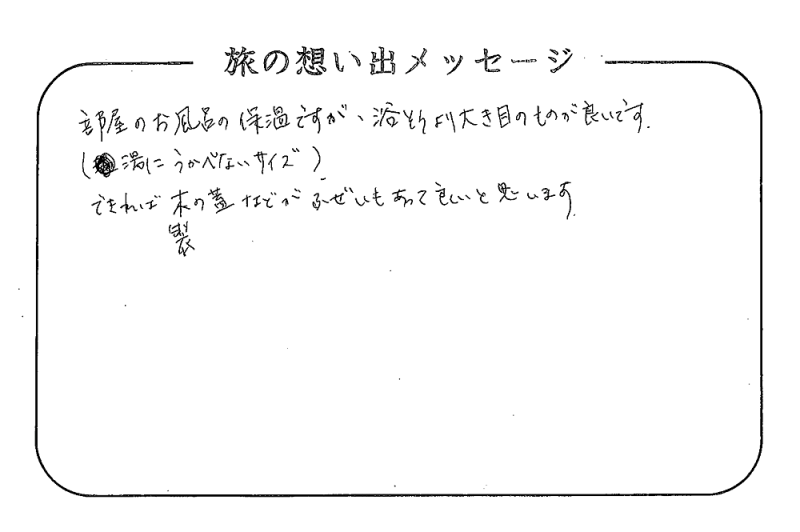 旅の想い出メッセージ
部屋のお風呂の保温ですが、浴そうより大き目のものが良いです。
(湯にうかべないサイズ)
できれば木の蓋などがふぜいもあって良いと思います。
製